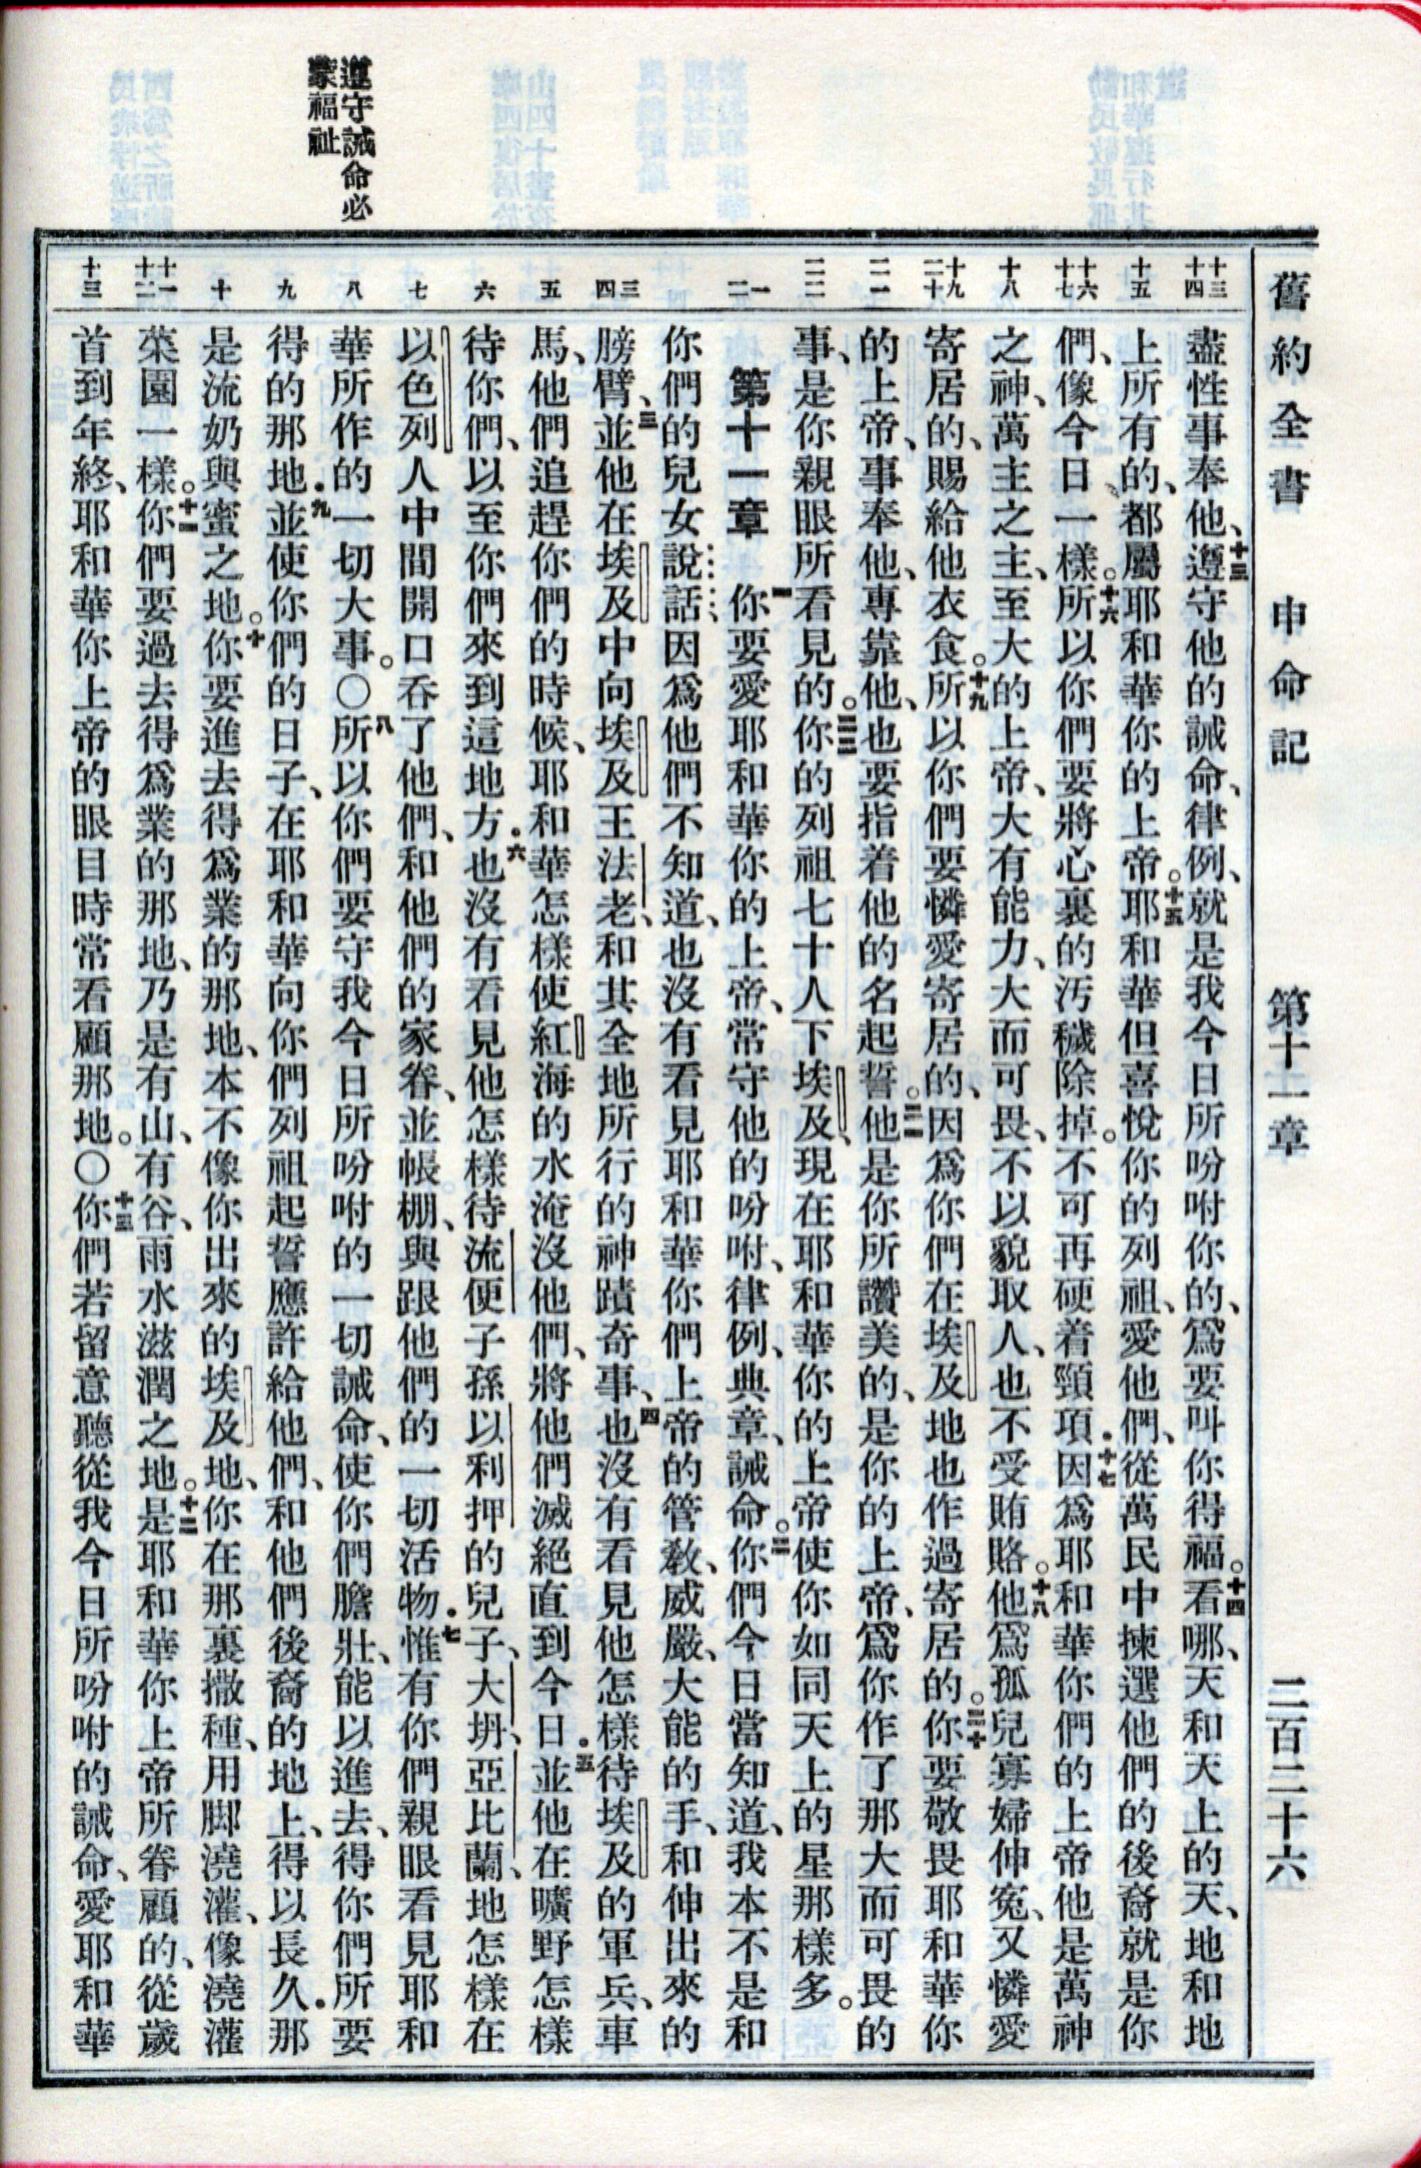 舊約全書　申命記　第十一章　二百二十六
遵守誡命必
蒙福祉
十三 十四
十五
十六 十七
十八
十九 二十
二一
二二
一 二
三 四
五
六
七
八
九
十
十一 十二
十三
盡性事奉他、十三遵守他的誡命、律例、就是我今日所吩咐你的、爲要叫你得福。十四看哪、天和天上的天、地和地
上所有的、都屬耶和華你的上帝。十五耶和華但喜悅你的列祖、愛他們、從萬民中揀選他們的後裔就是你
們、像今日一樣。十六所以你們要將心裏的汚穢除掉。不可再硬着頸項．十七因爲耶和華你們的上帝他是萬神
之神、萬主之主、至大的上帝、大有能力、大而可畏、不以貌取人、也不受賄賂。十八他爲孤兒寡婦伸冤、又憐愛
寄居的、賜給他衣食。十九所以你們要憐愛寄居的、因爲你們在埃及地也作過寄居的。二十你要敬畏耶和華你
的上帝、事奉他、專靠他、也要指着他的名起誓。二一他是你所讚美的、是你的上帝、爲你作了那大而可畏的
事、是你親眼所看見的。二二你的列祖七十人下埃及、現在耶和華你的上帝使你如同天上的星那樣多。
第十一章　一你要愛耶和華你的上帝、常守他的吩咐、律例、典章、誡命。二你們今日當知道、我本不是和
你們的兒女說話因爲他們不知道、也沒有看見耶和華你們上帝的管教、威嚴、大能的手、和伸出來的
膀臂、三並他在埃及中向埃及王法老、和其全地所行的神蹟奇事、四也沒有看見他怎樣待埃及的軍兵、車
馬、他們追趕你們的時候、耶和華怎樣使紅海的水淹沒他們、將他們滅絕直到今日．五並他在曠野怎樣
待你們、以至你們來到這地方．六也沒有看見他怎樣待流便子孫以利押的兒子、大坍、亞比蘭、地怎樣在
以色列人中間開口吞了他們、和他們的家眷、並帳棚、與跟他們的一切活物．七惟有你們親眼看見耶和
華所作的一切大事。〇八所以你們要守我今日所吩咐的一切誡命、使你們膽壯、能以進去、得你們所要
得的那地．九並使你們的日子、在耶和華向你們列祖起誓應許給他們、和他們後裔的地上、得以長久．那
是流奶與蜜之地。十你要進去得爲業的那地、本不像你出來的埃及地、你在那裏撒種、用脚澆灌、像澆灌
菜園一樣。十一你們要過去得爲業的那地、乃是有山、有谷、雨水滋潤之地。十二是耶和華你上帝所眷顧的、從歲
首到年終、耶和華你上帝的眼目時常看顧那地。〇十三你們若留意聽從我今日所吩咐的誡命、愛耶和華